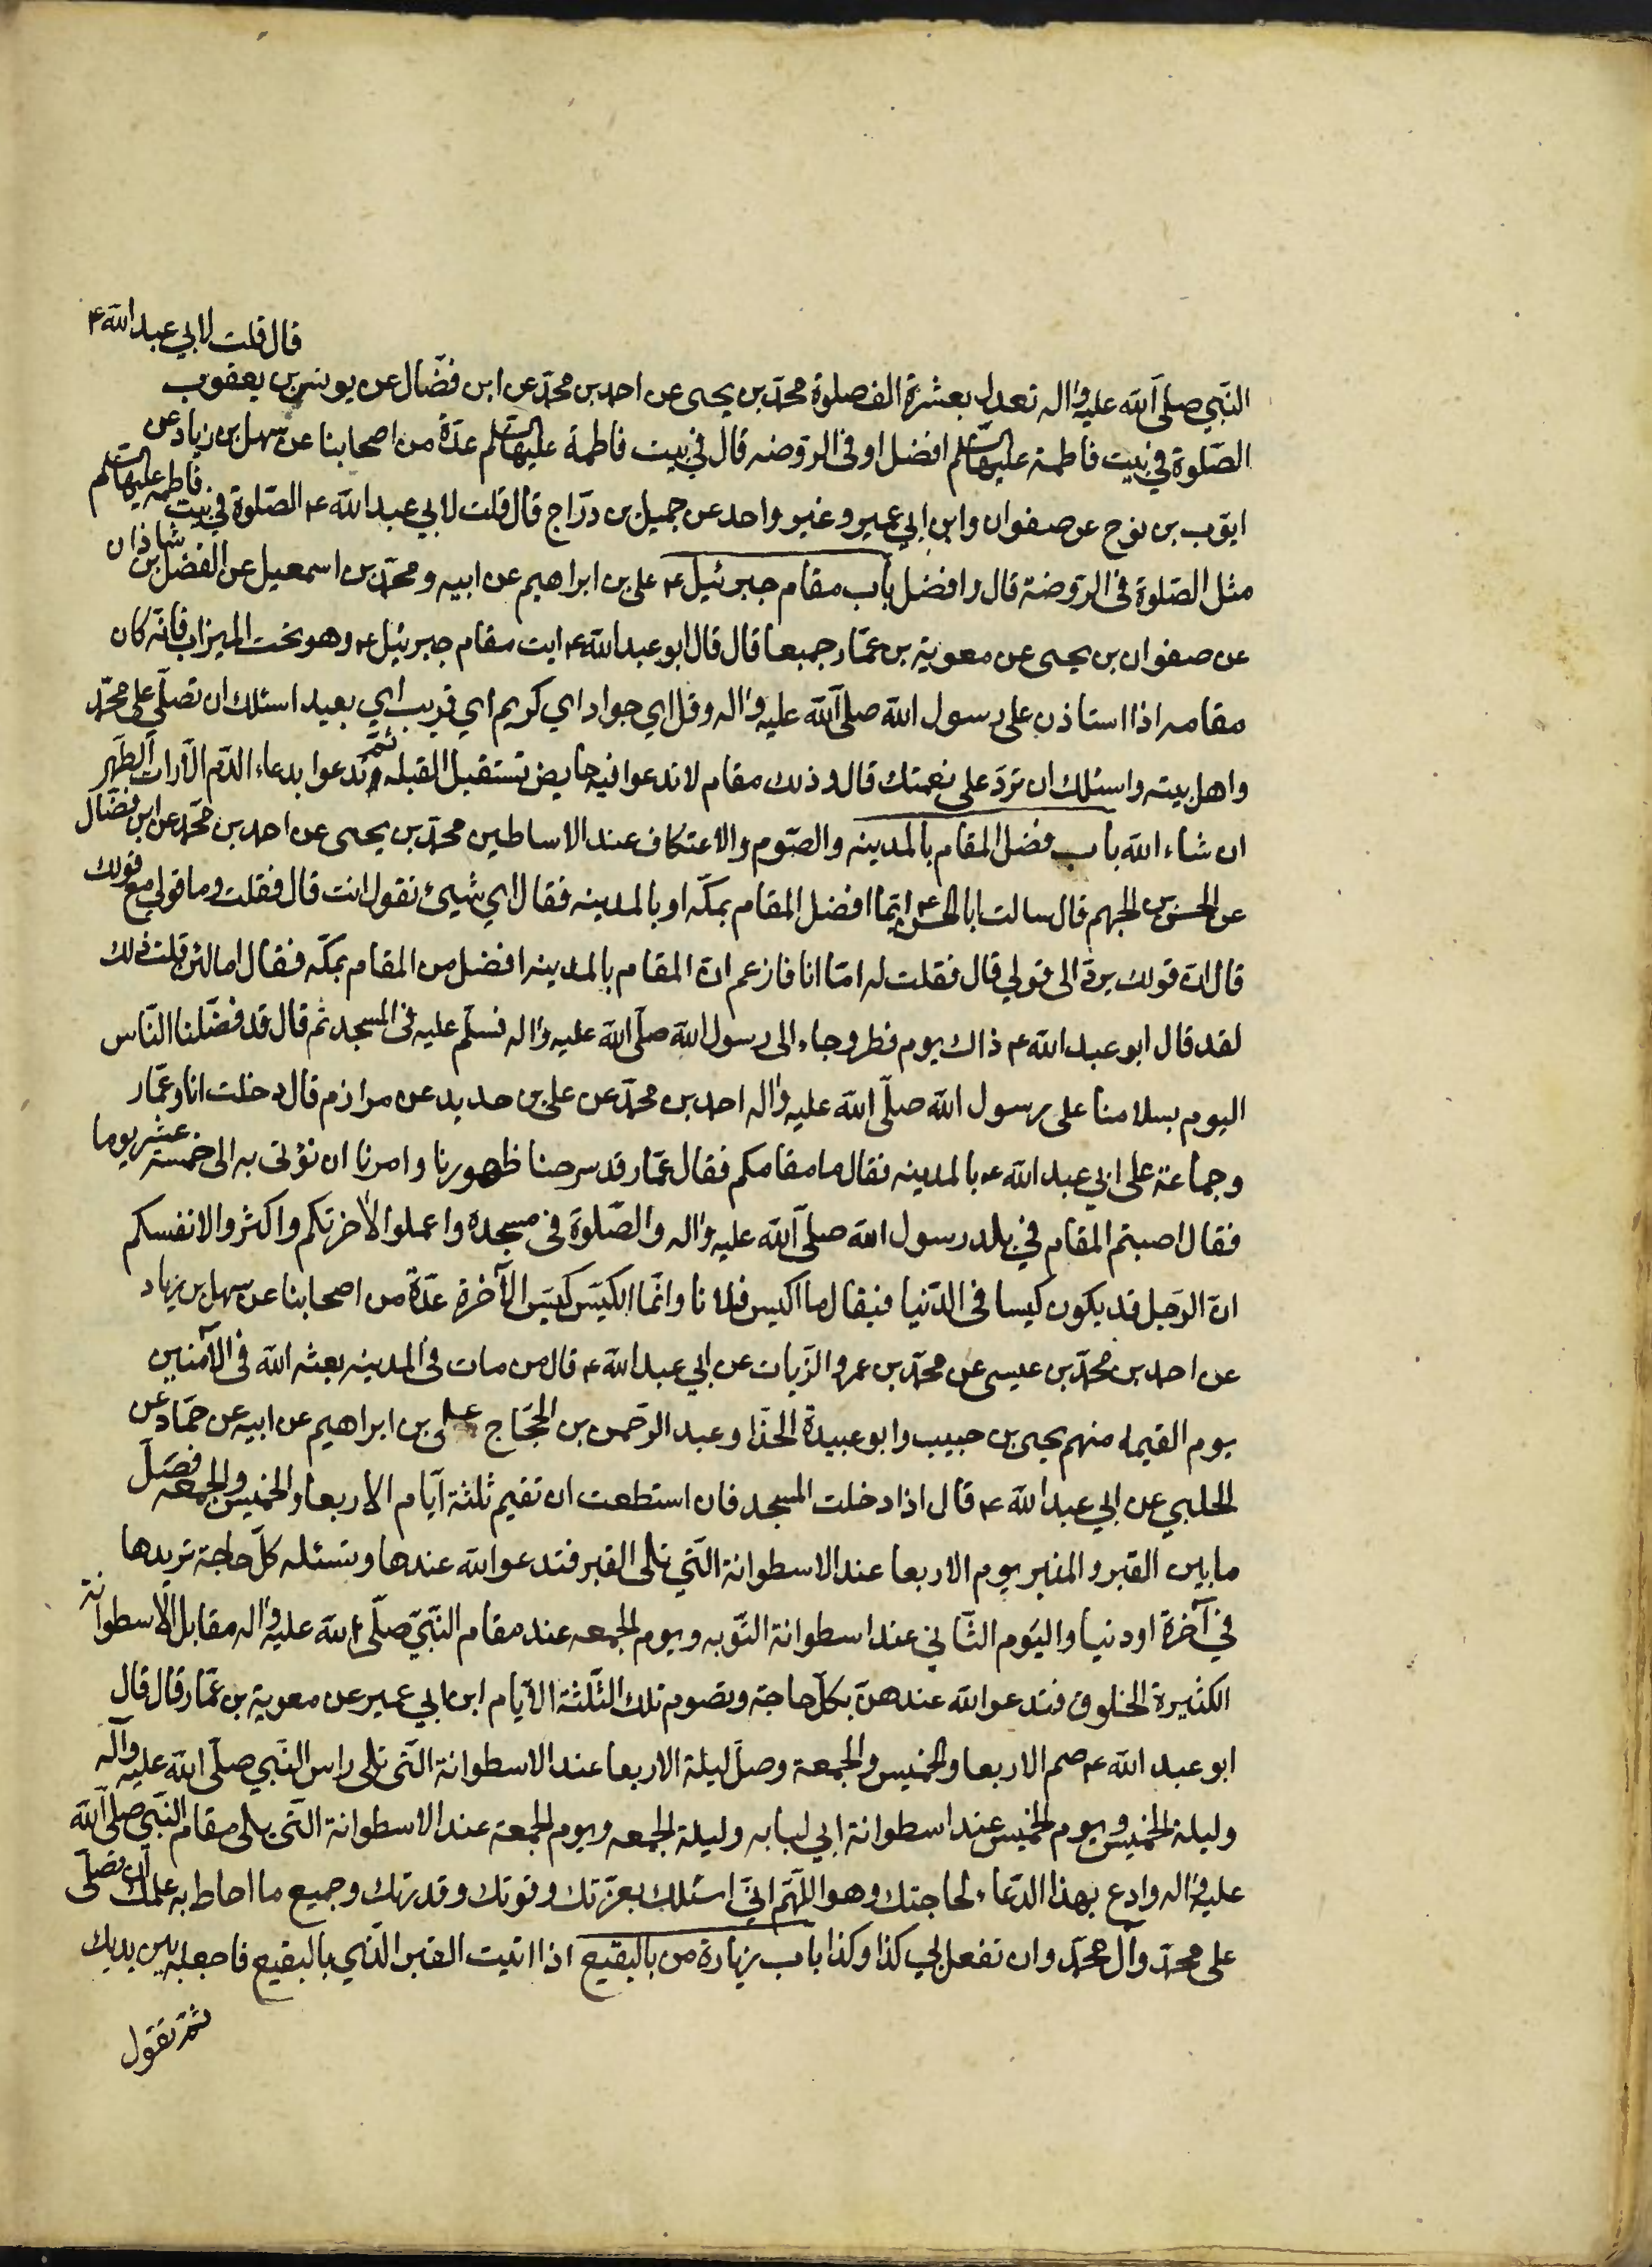 قال قلت لابي عبد الله ع
النبي صلى الله عليه واله تعدل بعشرة الف صلوة محمد بن يحيى عن احمد بن محمد عن ابن فضال عن يونس بن يعقوب
الصلوة في بيت فاطمة عليها السلم افضل او في الروضه قال في بيت فاطمة عليها السلم عدة من اصحابنا عن سهل بن زياد عن
ايوب بن نوح عن صفوان وابن ابي عمير وغير واحد عن جميل بن دراج قال قلت لابي عبد الله ع الصلوة في بيت فاطمه عليها السلم
مثل الصلوة في الروضة قال وافضل باب مقام جبرئيل ع علي بن ابراهيم عن ابيه ومحمد بن اسمعيل عن الفضل بن شاذان
عن صفوان بن يحيى عن معوية بن عمار جميعا قال قال ابو عبد الله ع ايت مقام جبرئيل ع وهو تحت الميزاب فانه كان
مقامه اذا استاذن على رسول الله صلى الله عليه واله وقل اي جواد اي كريم اي قريب اي بعيد اسئلك ان تصلي على محمد
واهل بيته واسئلك ان ترد علي نعمتك قال وذلك مقام لا تدعوا فيه حايض تستقبل القبله ثم تدعوا بدعاء الدم الا رات الطهر
ان شاء الله باب فضل المقام بالمدينه والصوم والاعتكاف عند الاساطين محمد بن يحيى عن احمد بن محمد عن ابن فضال
عن الحسن بن الجهم قال سالت ابا الحسن ع ايما افضل المقام بمكه او بالمدينه فقال اي شيئ تقول انت قال فقلت وما قولي مع قولك
قال ان قولك يرد الى قولي قال فقلت له اما انا فازعم ان المقام بالمدينه افضل من المقام بمكه فقال اما لئن قلت ذلك
لقد قال ابو عبد الله ع ذاك يوم فطر وجاء الى رسول الله صلى الله عليه واله فسلم عليه في المسجد ثم قال قد فضلنا الناس
اليوم بسلامنا على رسول الله صلى الله عليه واله احمد بن محمد عن علي بن حديد عن مرازم قال دخلت انا وعمار
وجماعة على ابي عبد الله ع بالمدينه فقال ما مقامكم فقال عمار قد سرحنا ظهورنا وامرنا ان نؤتى به الى خمسة عشر يوما
فقال اصبتم المقام في بلد رسول الله صلى الله عليه واله والصلوة في مسجده واعملوا لاخرتكم واكثروا لانفسكم
ان الرجل قد يكون كيسا في الدنيا فيقال ما اكيس فلانا وانما الكيس كيس الآخرة عدة من اصحابنا عن سهل بن زياد
عن احمد بن محمد بن عيسى عن محمد بن عمرو الزيات عن ابي عبد الله ع قال من مات في المدينه بعثه الله في الآمنين
يوم القيمه منهم يحيى بن حبيب وابو عبيدة الحذا وعبد الرحمن بن الحجاج علي بن ابراهيم عن ابيه عن حماد عن
الحلبي عن ابي عبد الله ع قال اذا دخلت المسجد فان استطعت ان تقيم ثلثة ايام الاربعا والخميس والجمعه فصل
ما بين القبر والمنبر يوم الاربعا عند الاسطوانة التي تلى القبر فتدعو الله عندها وتسئله كل حاجة تريدها
في آخرة او دنيا واليوم الثاني عند اسطوانة التوبه ويوم الجمعه عند مقام النبي صلى الله عليه واله مقابل الاسطوانة
الكثيرة الخلوق فتدعو الله عندهن بكل حاجة وتصوم تلك الثلثة الايام ابن ابي عمير عن معوية بن عمار قال قال
ابو عبد الله ع صم الاربعا والخميس والجمعة وصل ليلة الاربعا عند الاسطوانة التي تلى راس النبي صلى الله عليه وآله
وليلة الخميس ويوم الخميس عند اسطوانة ابي لبابه وليلة الجمعه ويوم الجمعة عند الاسطوانة التي يلى مقام النبي صلى الله
عليه واله وادع بهذا الدعاء لحاجتك وهو اللهم اني اسئلك بعزتك وقوتك وقدرتك وجميع ما احاط به علمك ان تصلى
على محمد وآل محمد وان تفعل بي كذا وكذا باب زيارة من بالبقيع اذا اتيت القبر الذي بالبقيع فاجعله بين يديك
ثم تقول